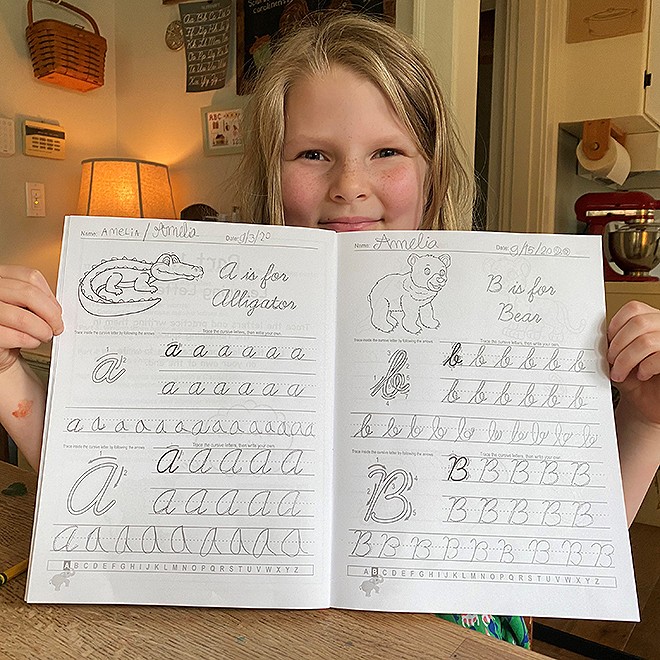 Name: AMELIA / Amelia Date: 9/3/20
A is for
Alligator
Trace inside the cursive letter by following the arrows.
Trace the cursive letters, then write your own.
a a a a a a
a a a a a a
Trace inside the cursive letter by following the arrows.
Trace the cursive letters, then write your own.
A A A A A
A A A A A
A A A A A A A A A
A B C D E F G H I J K L M N O P Q R S T U V W X Y Z
Name: Amelia Date: 9/15/2020
B is for
Bear
Trace inside the cursive letter by following the arrows.
Trace the cursive letters, then write your own.
b b b b b b
b b b b b b
Trace inside the cursive letter by following the arrows.
Trace the cursive letters, then write your own.
B B B B B
B B B B B
B B B B B B B B B
A B C D E F G H I J K L M N O P Q R S T U V W X Y Z